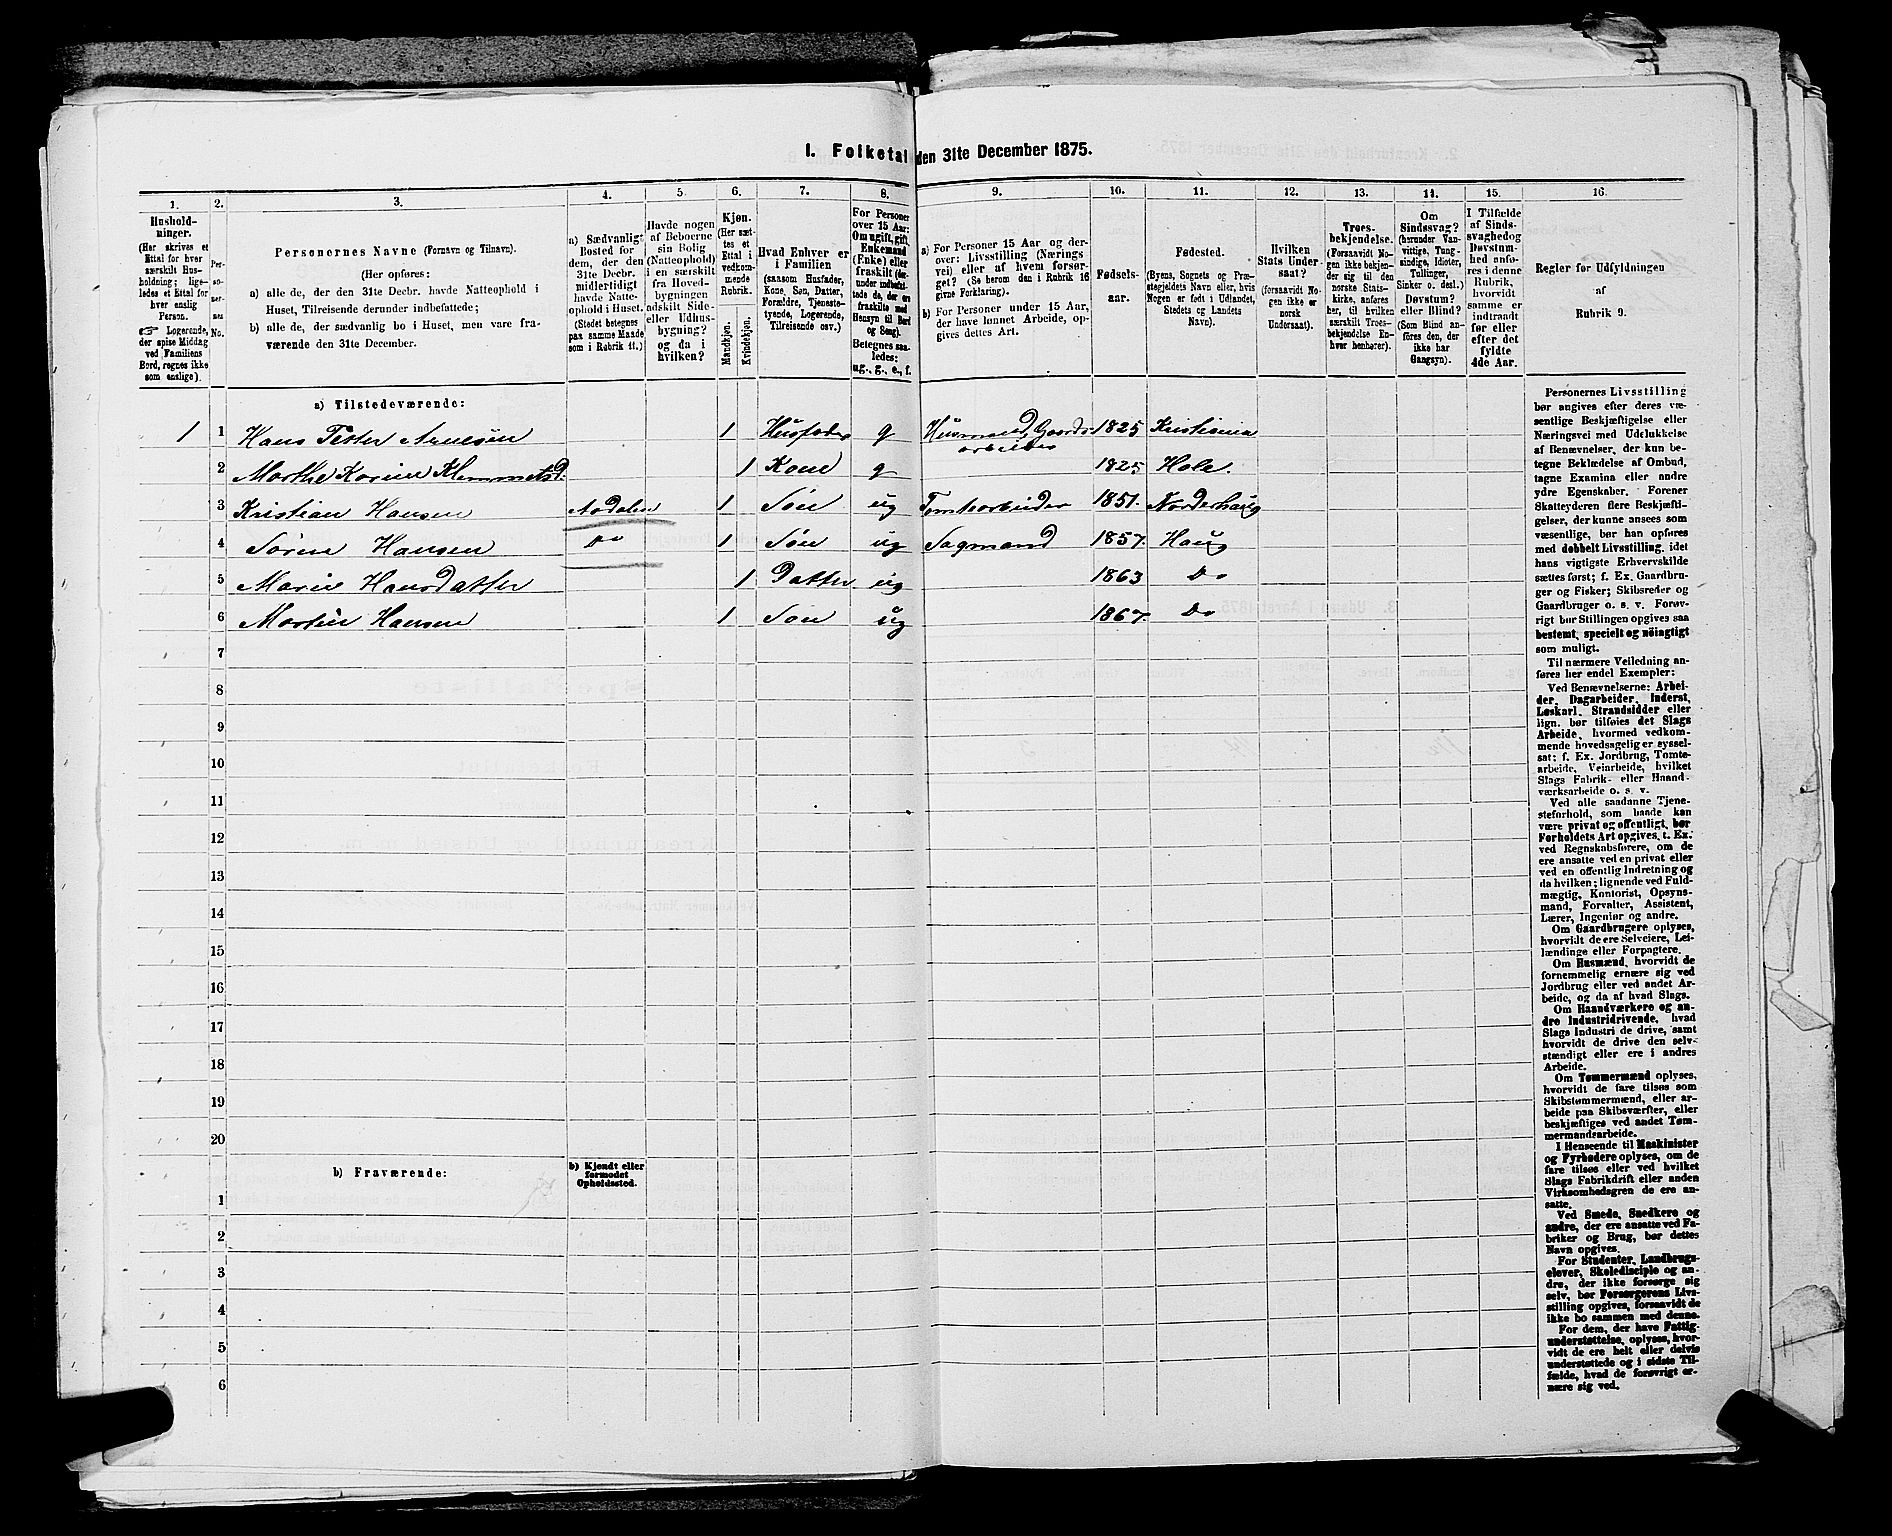 I. Folketal den 31te December 1875.
1.
Hushold-
ninger.
(Her skrives et
Ettal for hver
særskilt Hus-
holdning; lige-
ledes et Ettal for
hver enslig
Person.
☞ Logerende,
der spise Middag
ved Familiens
Bord, regnes ikke
som enslige).
2.
Per-
so-
ner-
nes
No.
3.
Personernes Navne (Fornavn og Tilnavn).
(Her opføres:
a) alle de, der den 31te Decbr. havde Natteophold i
Huset, Tilreisende derunder indbefattede;
b) alle de, der sædvanlig bo i Huset, men vare fra-
værende den 31te December.
4.
a) Sædvanligt
Bosted for
dem, der den
31te Decbr.
midlertidigt
havde Natte-
ophold i Huset.
(Stedet betegnes
paa samme Maade
som i Rubrik 11.)
5.
Havde nogen
af Beboerne
sin Bolig
(Natteophold)
i en særskilt
fra Hoved-
bygningen
adskilt Side-
eller Udhus-
bygning?
og da i
hvilken?
6.
Kjøn.
(Her sæt-
tes et
Ettal i
vedkom-
mende
Rubrik.
Mandkjøn.
Kvindekjøn.
7.
Hvad Enhver er
i Familien
(saasom Husfader,
Kone, Søn, Datter,
Forældre, Tjeneste-
tyende, Logerende,
Tilreisende osv.)
8.
For Personer
over 15 Aar:
Om ugift, gift,
Enkemand
(Enke) eller
fraskilt (der-
under indbefat-
tede de, der ere
fraskilte med
Hensyn til Bord
og Seng).
Betegnes saa-
ledes:
ug., g., e., f.
9.
a) For Personer 15 Aar og der-
over: Livsstilling (Nærings
vei) eller af hvem forsør-
get? (Se herom den i Rubrik 16
givne Forklaring).
b) For Personer under 15 Aar,
der have lønnet Arbeide, op-
gives dettes Art.
10.
Fødsels-
aar.
11.
Fødested.
(Byens, Sognets og Præ-
stegjeldets Navn eller, hvis
Nogen er født i Udlandet,
Stedets og Landets
Navn).
12.
Hvilken
Stats Under-
saat?
(forsaavidt No-
gen ikke er
norsk
Undersaat).
13.
Troes-
bekjendelse.
(Forsaavidt No-
gen ikke bekjen-
der sig til den
norske Stats-
kirke, anføres
her, til hvilken
særskilt Troes-
bekjendelse En-
hver henhører).
14.
Om
Sindssvag?
(herunder Van-
vittige, Tung-
sindige, Idioter,
Tullinger,
Sinker o. desl.)
Døvstum?
eller Blind?
(Som Blind an-
føres den, der
ikke har
Gangsyn).
15.
I Tilfælde
af Sinds-
svaghed og
Døvstum-
hed anfø-
res i denne
Rubrik,
hvorvidt
samme er
indtraadt
før eller
efter det
fyldte
4de Aar.
16.
Regler for Udfyldningen
af
Rubrik 9.
a) Tilstedeværende:
1 1 Hans Petter Arnesen 1 Husfader g Husmand, Gaards- 1825 Kristiania
arbeider
2 Marthe Karine Klemmetsd. 1 Kone g 1825 Hole.
3 Kristian Hansen Aadalen 1 Søn ug Tomtearbeider 1851. Norderhaug
4 Søren Hansen Do 1 Søn ug Sagmand 1857. Haug
5 Marie Hansdatter 1 Datter ug 1863 Do
6 Martin Hansen 1 Søn ug 1867. Do
7
8
9
10
11
12
13
14
15
16
17
18
19
20
b) Fraværende:
b) Kjendt eller
formodet
Opholdssted.
1
2
3
4
5
6
Personernes Livsstilling
bør angives efter deres væ-
sentlige Beskjæftigelse eller
Næringsvei med Udelukkelse
af Benævnelser, der kun be-
tegne Beklædelse af Ombud,
tagne Examina eller andre
ydre Egenskaber. Forener
Skatteyderen flere Beskjæfti-
gelser, der kunne ansees som
væsentlige, bør han opføres
med dobbelt Livsstilling, idet
hans vigtigste Erhvervskilde
sættes først; f. Ex. Gaardbru-
ger og Fisker; Skibsreder og
Gaardbruger o. s. v. Forøv-
rigt bør Stillingen opgives saa
bestemt, specielt og nøiagtigt
som muligt.
Til nærmere Veiledning an-
føres her endel Exempler:
Ved Benævnelserne: Arbei-
der, Dagarbeider, Inderst,
Løskarl, Strandsidder eller
lign. bør tilføies det Slags
Arbeide, hvormed vedkom-
mende hovedsagelig er syssel-
sat; f. Ex. Jordbrug, Tomte-
arbeide, Veiarbeide, hvilket
Slags Fabrik- eller Haand-
værksarbeide o. s. v.
Ved alle saadanne Tjene-
steforhold, som baade kan
være privat og offentligt, bør
Forholdets Art opgives, t. Ex.
ved Regnskabsførere, om de
ere ansatte ved en privat eller
ved en offentlig Indretning og
da hvilken; lignende ved Fuld-
mægtig, Kontorist, Opsyns-
mand, Forvalter, Assistent,
Lærer, Ingeniør og andre.
Om Gaardbrugere oplyses,
hvorvidt de ere Selveiere, Lei-
lændinge eller Forpagtere.
Om Husmænd, hvorvidt de
fornemmelig ernære sig ved
Jordbrug eller ved andet Ar-
beide, og da af hvad Slags.
Om Haandværkere og an-
dre Industridrivende, hvad
Slags Industri de drive, samt
hvorvidt de drive den selv-
stændigt eller ere i andres
Arbeide.
Om Tømmermænd oplyses,
hvorvidt de fare tilsøs som
Skibstømmermænd, eller ar-
beide paa Skibsværfter, eller
beskjæftiges ved andet Tøm-
mermandsarbeide.
I Henseende til Maskinister
og Fyrbødere oplyses, om de
fare tilsøs eller ved hvilket
Slags Fabrikdrift eller anden
Virksomhedsgren de ere an-
satte.
Ved Smede, Snedkere og
andre, der ere ansatte ved Fa-
briker og Brug, bør dettes
Navn opgives.
For Studenter, Landbrugs-
elever, Skoledisciple og an-
dre, der ikke forsørge sig
selv, bør Forsørgerens Livs-
stilling opgives, forsaavidt de
ikke bo sammen med denne.
For dem, der have Fattig-
understøttelse, oplyses, hvor-
vidt de ere helt eller delvis
understøttede og i sidste Til-
fælde, hvad de forøvrigt er-
nære sig ved.